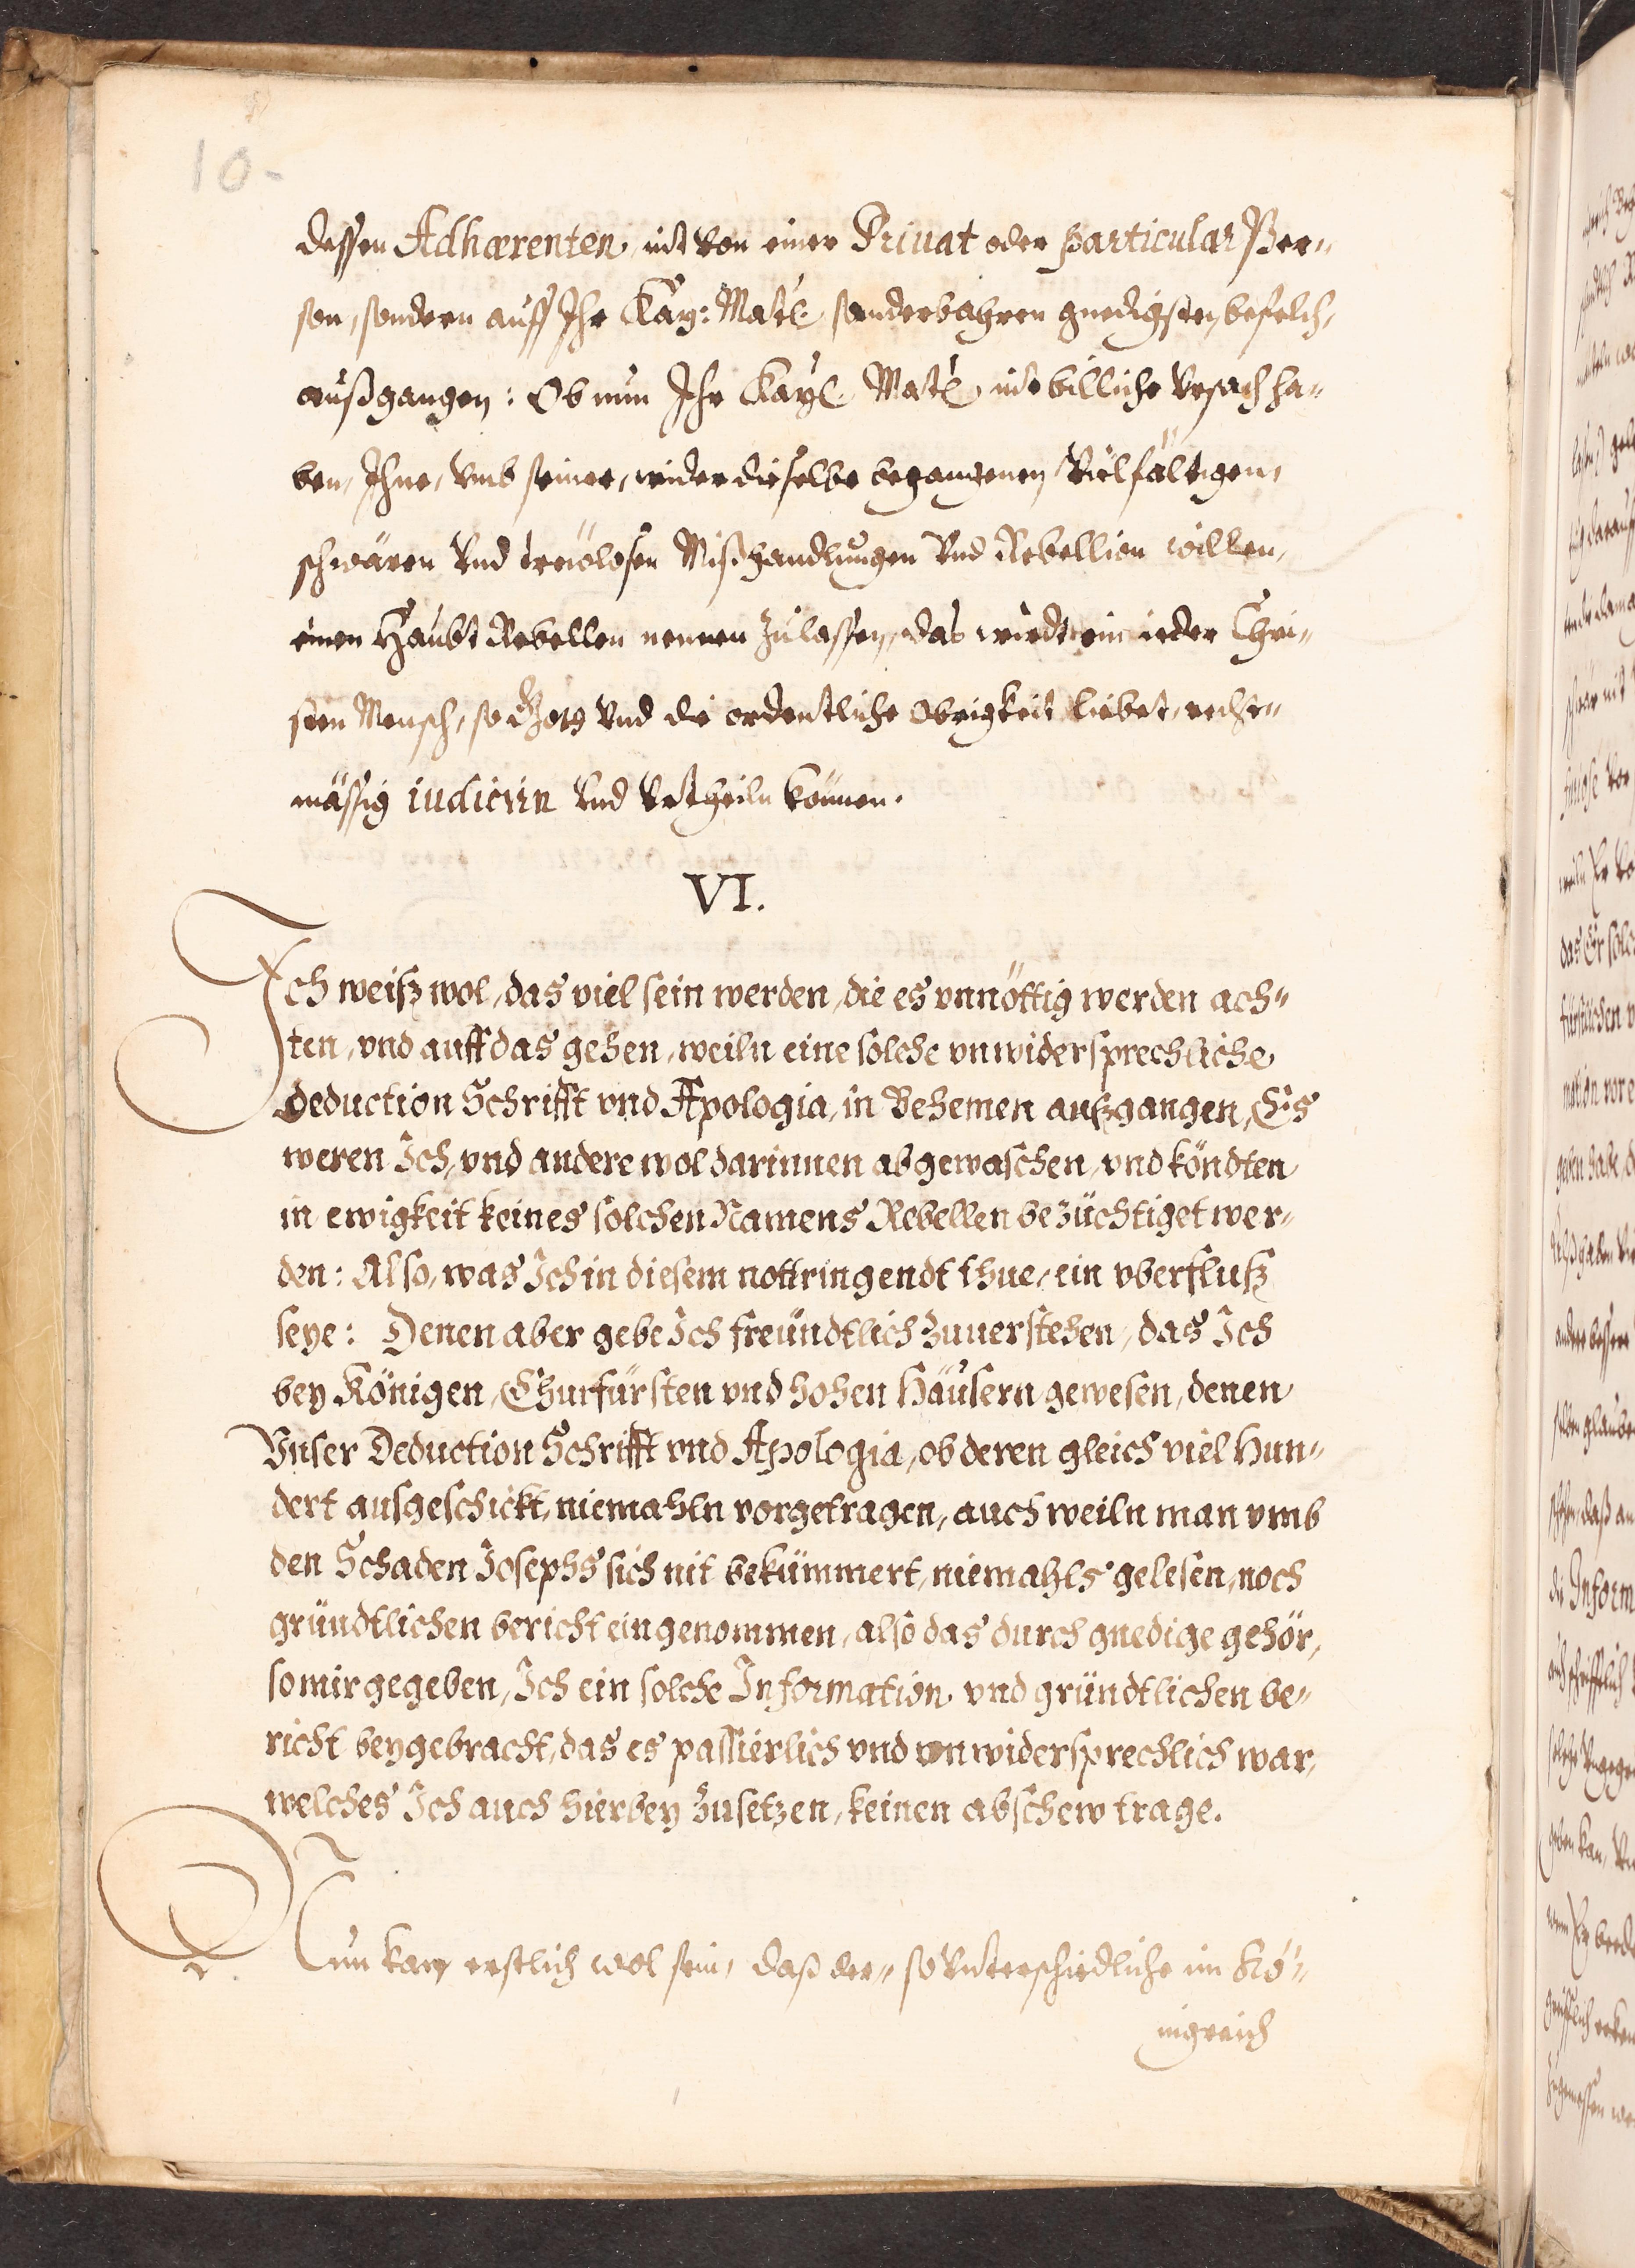 10.
dessen Adhærenten, nit von einer Priuat oder particular Per„
son, sondern auff Ihr Kay: Matt: sonderbahren gnedigsten befelch,
außgangen: Ob nun Ihr Kayl. Matt: nit billiche vrsach ha„
ben, Ihne, vmb seiner, wider dieselbe begangenen vielfältigen,
schwären vnd trewlosen Mißhandlungen vnd Rebellion willen,
einen Haubt Rebellen nennen zulassen, das wirdt ein ieder Chri„
sten Mensch, so Gott vnd die ordentliche Obrigkeit liebet, recht„
mässig iudicirn vnd vrtheiln können.
VI.
Ich weiß wol, das viel sein werden, die es vnnöttig werden ach„
ten, vnd auff das gehen, weiln eine solche vnwidersprechliche
deduction Schrifft vnd Apologia, in Behemen außgangen, Es
weren Ich, vnd andere wol darinnen abgewaschen, vnd köndten
in ewigkeit keines solchen Namens Rebellen bezüchtiget wer„
den: Also, was Ich in diesem nottringendt thue, ein vberfluß
seye: Denen aber gebe Ich freündtlich zuuerstehen, das Ich
bey Königen, Churfürsten vnd hohen Häusern gewesen, denen
Vnser Deduction Schrifft vnd Apologia, ob deren gleich viel Hun„
dert ausgeschickt, niemahln vorgetragen, auch weiln man vmb
den Schaden Josephs sich nit bekümmert, niemahls gelesen, noch
gründtlichen bericht eingenommen, also das durch gnedige gehör,
so mir gegeben, Ich ein solche Information vnd gründtlichen be„
richt beygebracht, das es passierlich vnd vnwidersprechlich war,
welches Ich auch hierbey zusetzen, keinen abschew trage.
Nun kan erstlich wol sein, daß der„ so vnterschiedliche im Kö„
nigreich